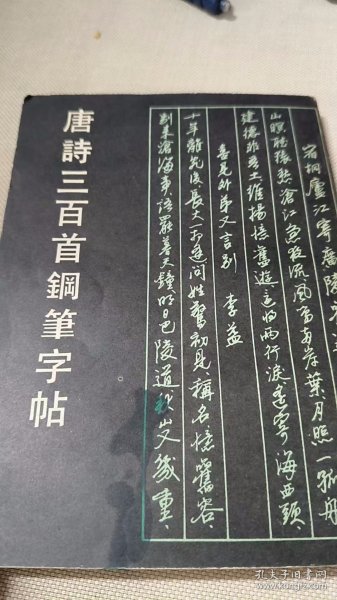 唐詩三百首鋼筆字帖
宿桐廬江寄廣陵
山暝聽猿愁滄江急夜流風鳴兩岸葉月照一孤舟
建德非吾土維揚憶舊遊還將兩行淚遙寄海西頭
喜見外弟又言別 李益
十年離亂後長大一相逢問姓驚初見稱名憶舊容
別來滄海事語罷暮天鐘明日巴陵道秋山又幾重
孔夫子旧书网